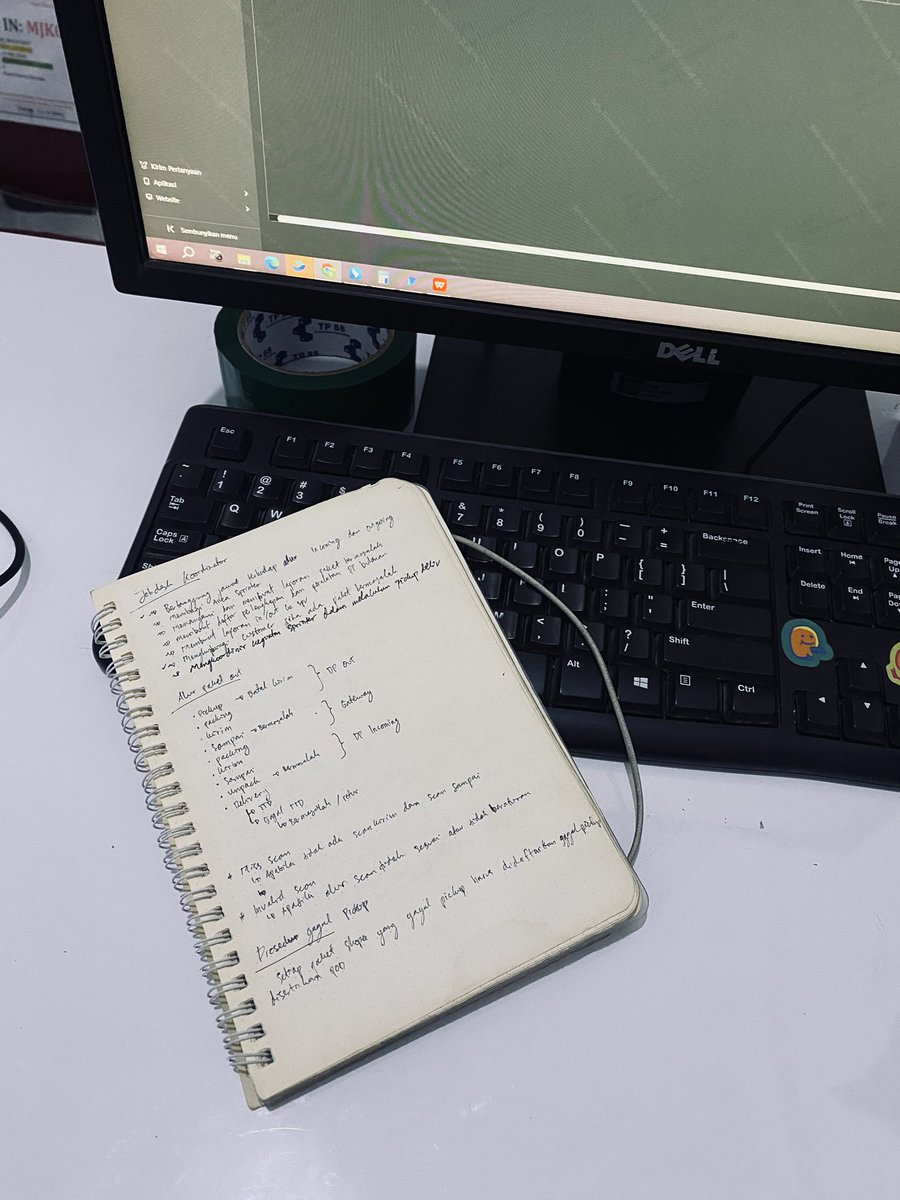 IN: MJK
Kirim Pertanyaan
Aplikasi
Website
Sembunyikan menu
W
DELL
TP 88
TP 88
Esc
F1 F2 F3 F4 F5 F6 F7 F8 F9 F10 F11 F12
Print Screen
Scroll Lock
Pause Break
~ ! 1 @ 2 # 3 $ & 7 * 8 ( 9 ) 0 _ - + = Backspace
Insert Home Page Up
Tab Q W O P { [ } ] | \
Delete End
Caps Lock A
: ; " ' Enter
< , > . ? / Shift
Alt Ctrl
Jobdesk Koordinator
→ Bertanggung jawab terhadap alur Incoming dan Outgoing
→ Membagi Area Sprinter
→ Menangani dan membuat laporan paket bermasalah
→ membuat daftar perlengkapan dan peralatan DP bulanan
→ Membuat laporan in/out ke spv
→ Menghubungi customer jika ada paket bermasalah
→ Mengkoordinir kegiatan Sprinter dalam melakukan pickup
Alur paket out
• Pickup → Batal kirim
• packing
• kirim
} DP Out
• Sampai → Bermasalah
• packing
• kirim
} Gateway
• Sampai
• unpack → Bermasalah
• Delivery
} DP Incoming
↳ TTD
↳ Gagal TTD
↳ Bermasalah / retur
* Miss scan
↳ Apabila tidak ada scan kirim dan scan sampai
* Invalid scan
↳ Apabila alur scan tidak sesuai atau tidak berurutan
Prosedur gagal Pickup
Setiap paket shopee yang gagal pickup harus didaftarkan gagal pickup
disertakan POD